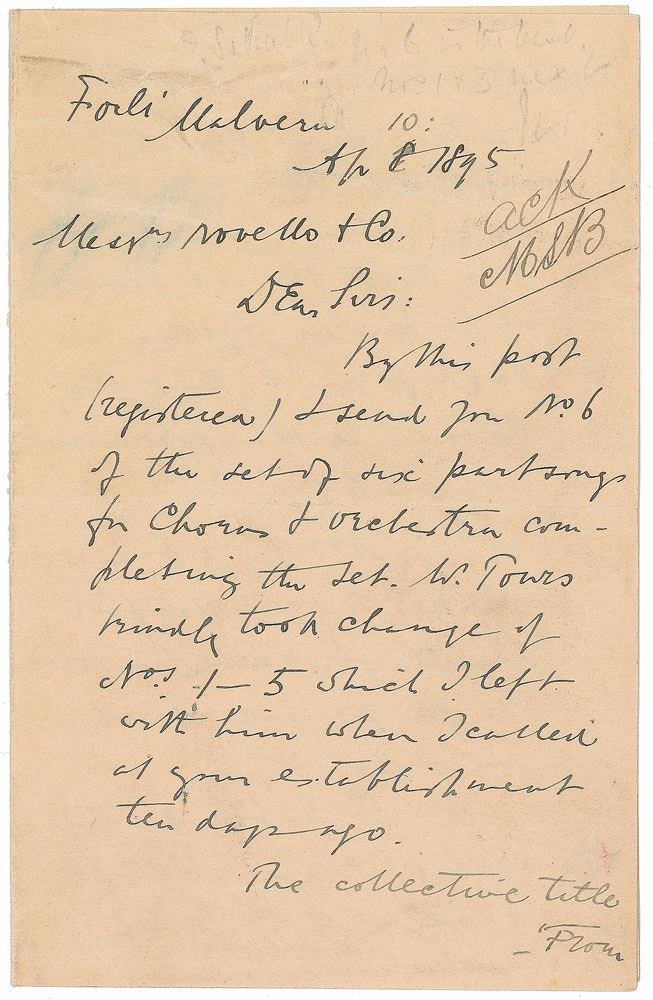 6 is the best.
Nos 1 + 3 next
Forli Malvern 10:
Ap 1895
ack
MSB
Messrs Novello & Co.
Dear Sirs:
By this post
(registered) I send you No. 6
of the set of six part songs
for Chorus & orchestra com-
pleting the set. Mr. Tours
kindly took charge of
Nos. 1–5 which I left
with him when I called
at your establishment
ten days ago.
The collective title
– 'From